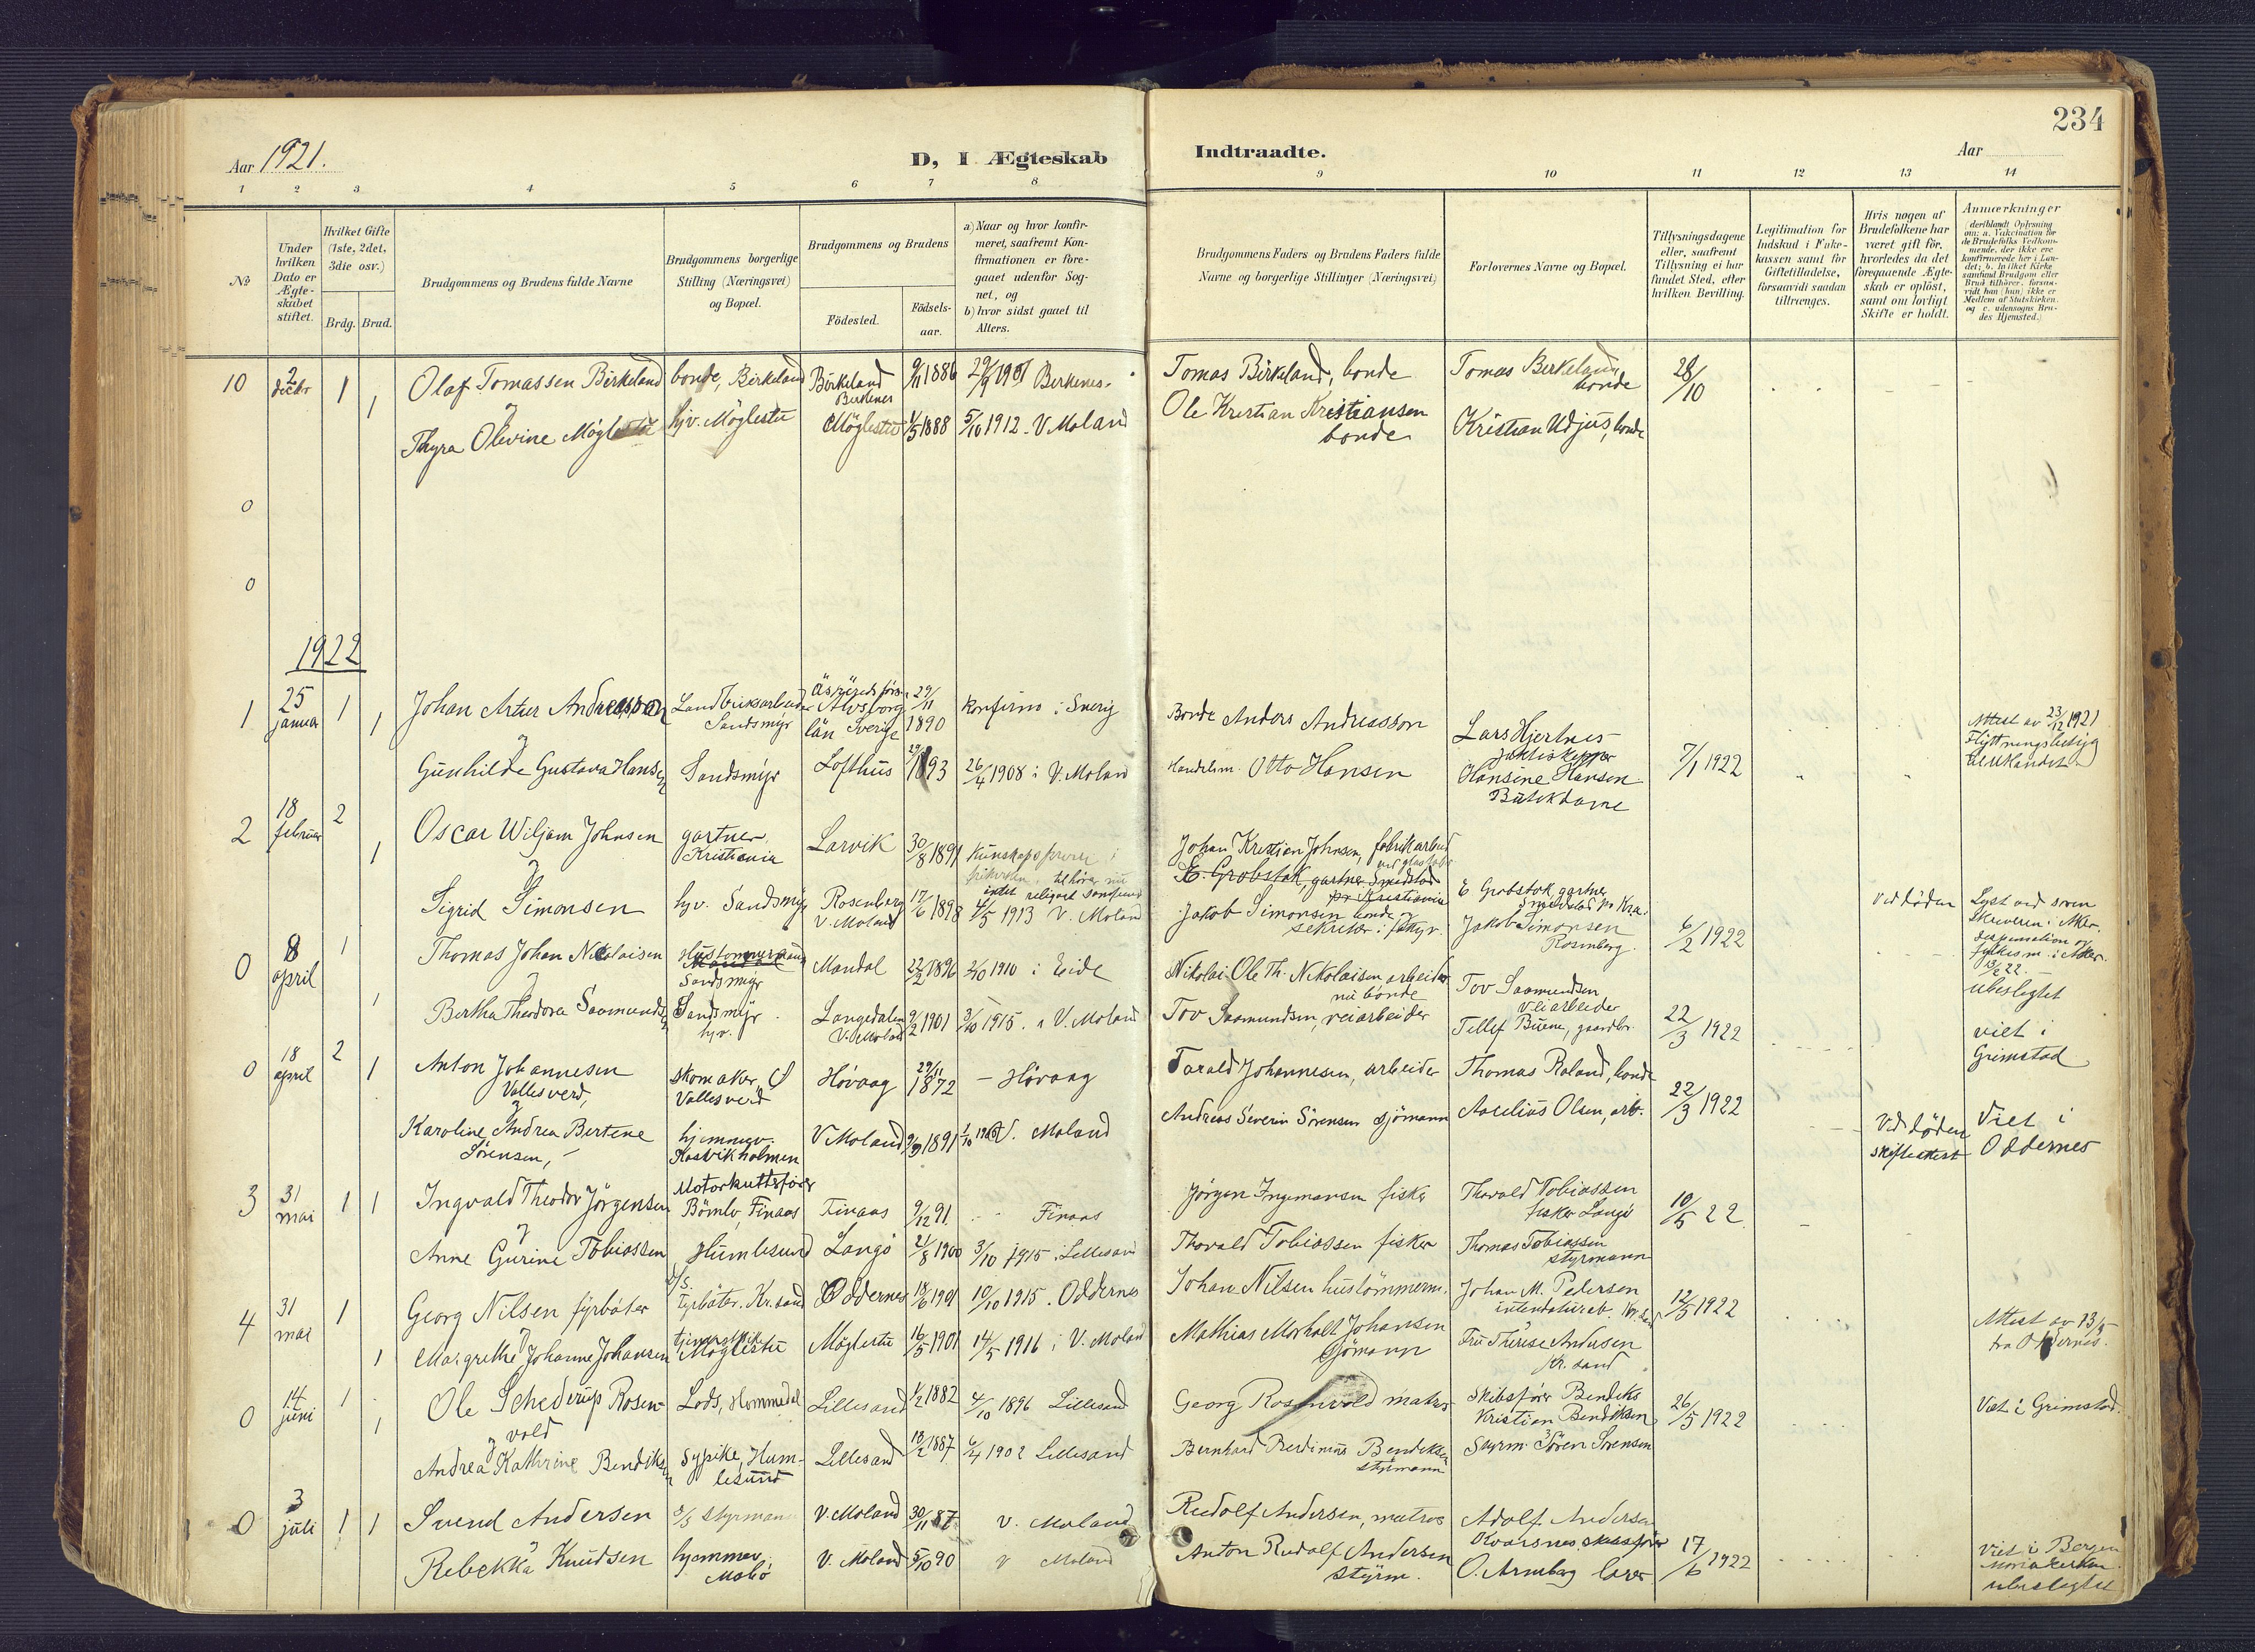 234
Aar 1921.
D, I Ægteskab
Indtraadte.
Aar
1 2 3 4 5 6 7 8 9 10 11 12 13 14
No
Under hvilken Dato er Ægteskabet stiftet.
Hvilket Gifte (1ste, 2det, 3die osv.)
Brdg. Brud.
Brudgommens og Brudens fulde Navne
Brudgommens borgerlige Stilling (Næringsvei) og Bopæl.
Brudgommens og Brudens
Födested.
Födselsaar.
a) Naar og hvor konfirmeret, saafremt Konfirmationen er foregaaet udenfor Sognet, og
b) hvor sidst gaaet til Alters.
Brudgommens Faders og Brudens Faders fulde Navne og borgerlige Stillinger (Næringsvei)
Forlovernes Navne og Bopæl.
Tillysningsdagene eller, saafremt Tillysning ei har fundet Sted, efter hvilken Bevilling.
Legitimation for Indskud i Enkekassen samt for Giftetilladelse, forsaavidt saadan tiltrænges.
Hvis nogen af Brudefolkene har været gift för, hvorledes da det foregaaende Ægteskab er oplöst, samt om lovligt Skifte er holdt.
Anmærkninger
(deriblandt Oplysning om: a. Vakcination for de Brudefolks Vedkommende, der ikke ere konfirmerede her i Landet; b. hvilket Kirkesamfund Brudgom eller Brud tilhörer, forsaavidt han (hun) ikke er Medlem af Statskirken, og c. udensogns Brudes Hjemsted.)
10 2 decbr 1 Olaf Tomassen Birkeland bonde, Birkeland Birkeland Berkenes 9/11 1886 29/9 1901 Berkenes. Tomas Birkeland, bonde Tomas Birkeland bonde 28/10
1 Thyra Olevine Möglestu hjv. Möglestu Möglestu 1/5 1888 5/10 1912 - V. Moland Ole Kristian Kristiansen bonde Kristian Udjus, bonde
0
0
1922
1 25 januar 1 Johan Artur Andreasson Landbruksarbeider Sandsmyr Alvsborg län Sverige 29/11 1890 konfirm. i Sverig Bonde Anders Andreasson Lars Hjertnes jaktskipper Attest av 23/12 1921
1 Gunhilde Gustava Hansen Sandsmyr Lofthus 1893 26/4 1908 i V. Moland Handelsm. Otto Hansen Hansine Hansen Butikdame 7/1 1922
2 18 februar 2 Oscar Wiljam Johnsen gartner Kristiania Larvik 30/8 1891 Johan Kristian Johnsen, fabrikarbeid
E. Grobstok, gartner Smedstad pr Kristiania E Grobstok gartner Smedstad pr Kra. Ved döden
1 Sigrid Simonsen hjv. Sandsmyr Rosenberg V. Moland 17/6 1898 4/5 1913 V. Moland Jakob Simonsen bonde Jakob Simonsen Rosenberg. 6/2 1922
0 8 april 1 Thomas Johan Nicolaisen Hustömmermand Sandsmyr Mandal 22/2 1896 2/10 1910 i Eide Nikolai Ole Th. Nikolaisen arbeider nu bonde Tov Saamundsen veiarbeider ubeslegtet
1 Bertha Theodora Saamundsen Sandsmyr hjv. Langedalen V. Moland 9/2 1901 3/10 1915. i V. Moland Tov Saamundsen, veiarbeider Tellef Buene, gaardbr. 22/3 1922 viet i Grimstad
0 18 april 2 1 Anton Johannesen Vallesverd, skomaker, Vallesverd Hövaag 29/11 1872 - Hövaag Tarald Johannesen, arbeider Thomas Roland, bonde 22/3 1922
Karoline Andrea Bertene Sørensen, hjemmev. Kosvikholmen V Moland 9/9 1891 1/10 1906 V. Moland Andreas Severin Sörensen sjömann Aocelius Olsen, arb. Ved döden skifteattest Viet i Oddernes
3 31 mai 1 1 Ingvald Theodor Jörgensen Motorkuttsförer Bömlo, Finaas Finaas 9/12 91 - Finaas Jörgen Ingemansen fisker Thorvald Tobiassen fisker Langö 10/5 22
Anne Gurine Tobiassen Humlesund Langö 21/8 1900 3/10 1915 i Lillesand Thorvald Tobiassen fisker Thomas Tobiassen styrmann
4 31 mai 1 Georg Nilsen fyrböter Fyrböter. Kr.sand Oddernes 18/6 1901 10/10 1915. Oddernes Johan Nilsen hustömmerm. Johan M. Pedersen 12/5 1922 Attest av 13/5 fra Oddernes.
1 Margrethe Johanne Johansen tjenestpike Möglestu Möglestu 16/5 1901 14/5 1916 i V. Moland Mathias Morholt Johansen Sjömann Fru Therese Andersen Kr. sand
0 14 juni 1 1 Ole Schederup Rosenvold Lods, Hommedal Lillesand 1/2 1882 4/10 1896 Lillesand Georg Rosenvold matros Skibsförer Bendiks Kristian Bendiksen 26/5 1922 Viet i Grimstad
Andrea Kathrine Bendiksen Sypike, Humlesund Lillesand 18/2 1887 6/4 1902 Lillesand Bernhard Berdinius Bendiksen styrmann Styrm. Sören Sørensen
0 3 juli 1 1 Svend Andersen styrmann V. Moland 30/11 87 V. Moland Rudolf Andersen, matros Adolf Andersen Kvarsnes, skibsförer 17/6 1922
Rebekka Knudsen hjemmev. Molö V. Moland 5/10 90 V Moland Anton Rudolf Andersen styrm. O. Armberg lærer Viet i Bergen Mariakirken ubeslegtet